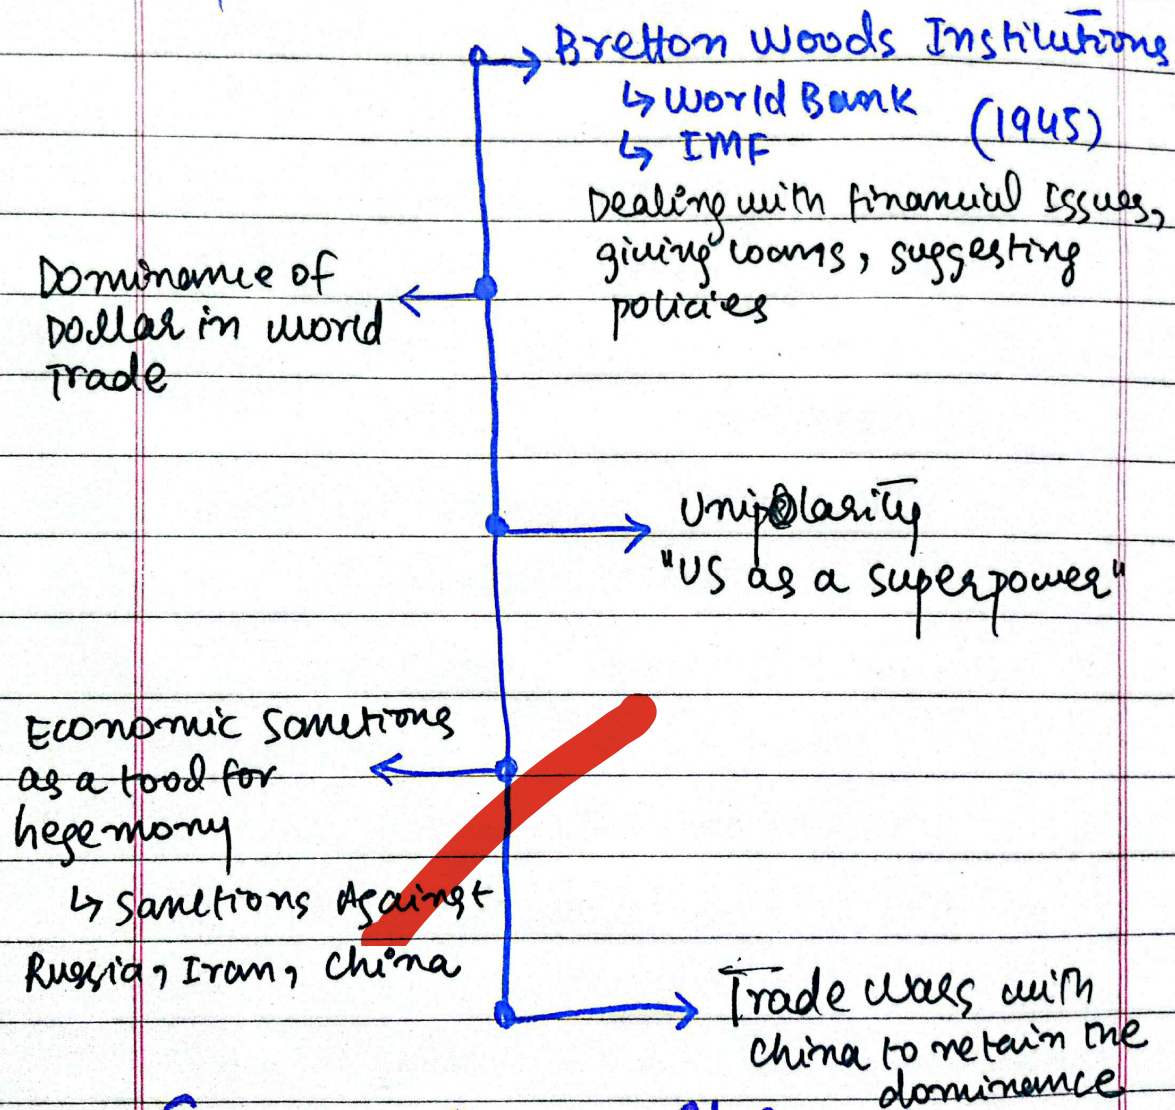 Bretton Woods Institutions
↳ World Bank
(1945)
↳ IMF
Dealing with financial Issues,
giving loans, suggesting
policies
Dominance of
Dollar in world
Trade
Unipolarity
"US as a superpower"
Economic Sanctions
as a tood for
hegemony
↳ Sanctions Against
Russia, Iran, China
Trade wars with
China to retain the
dominance